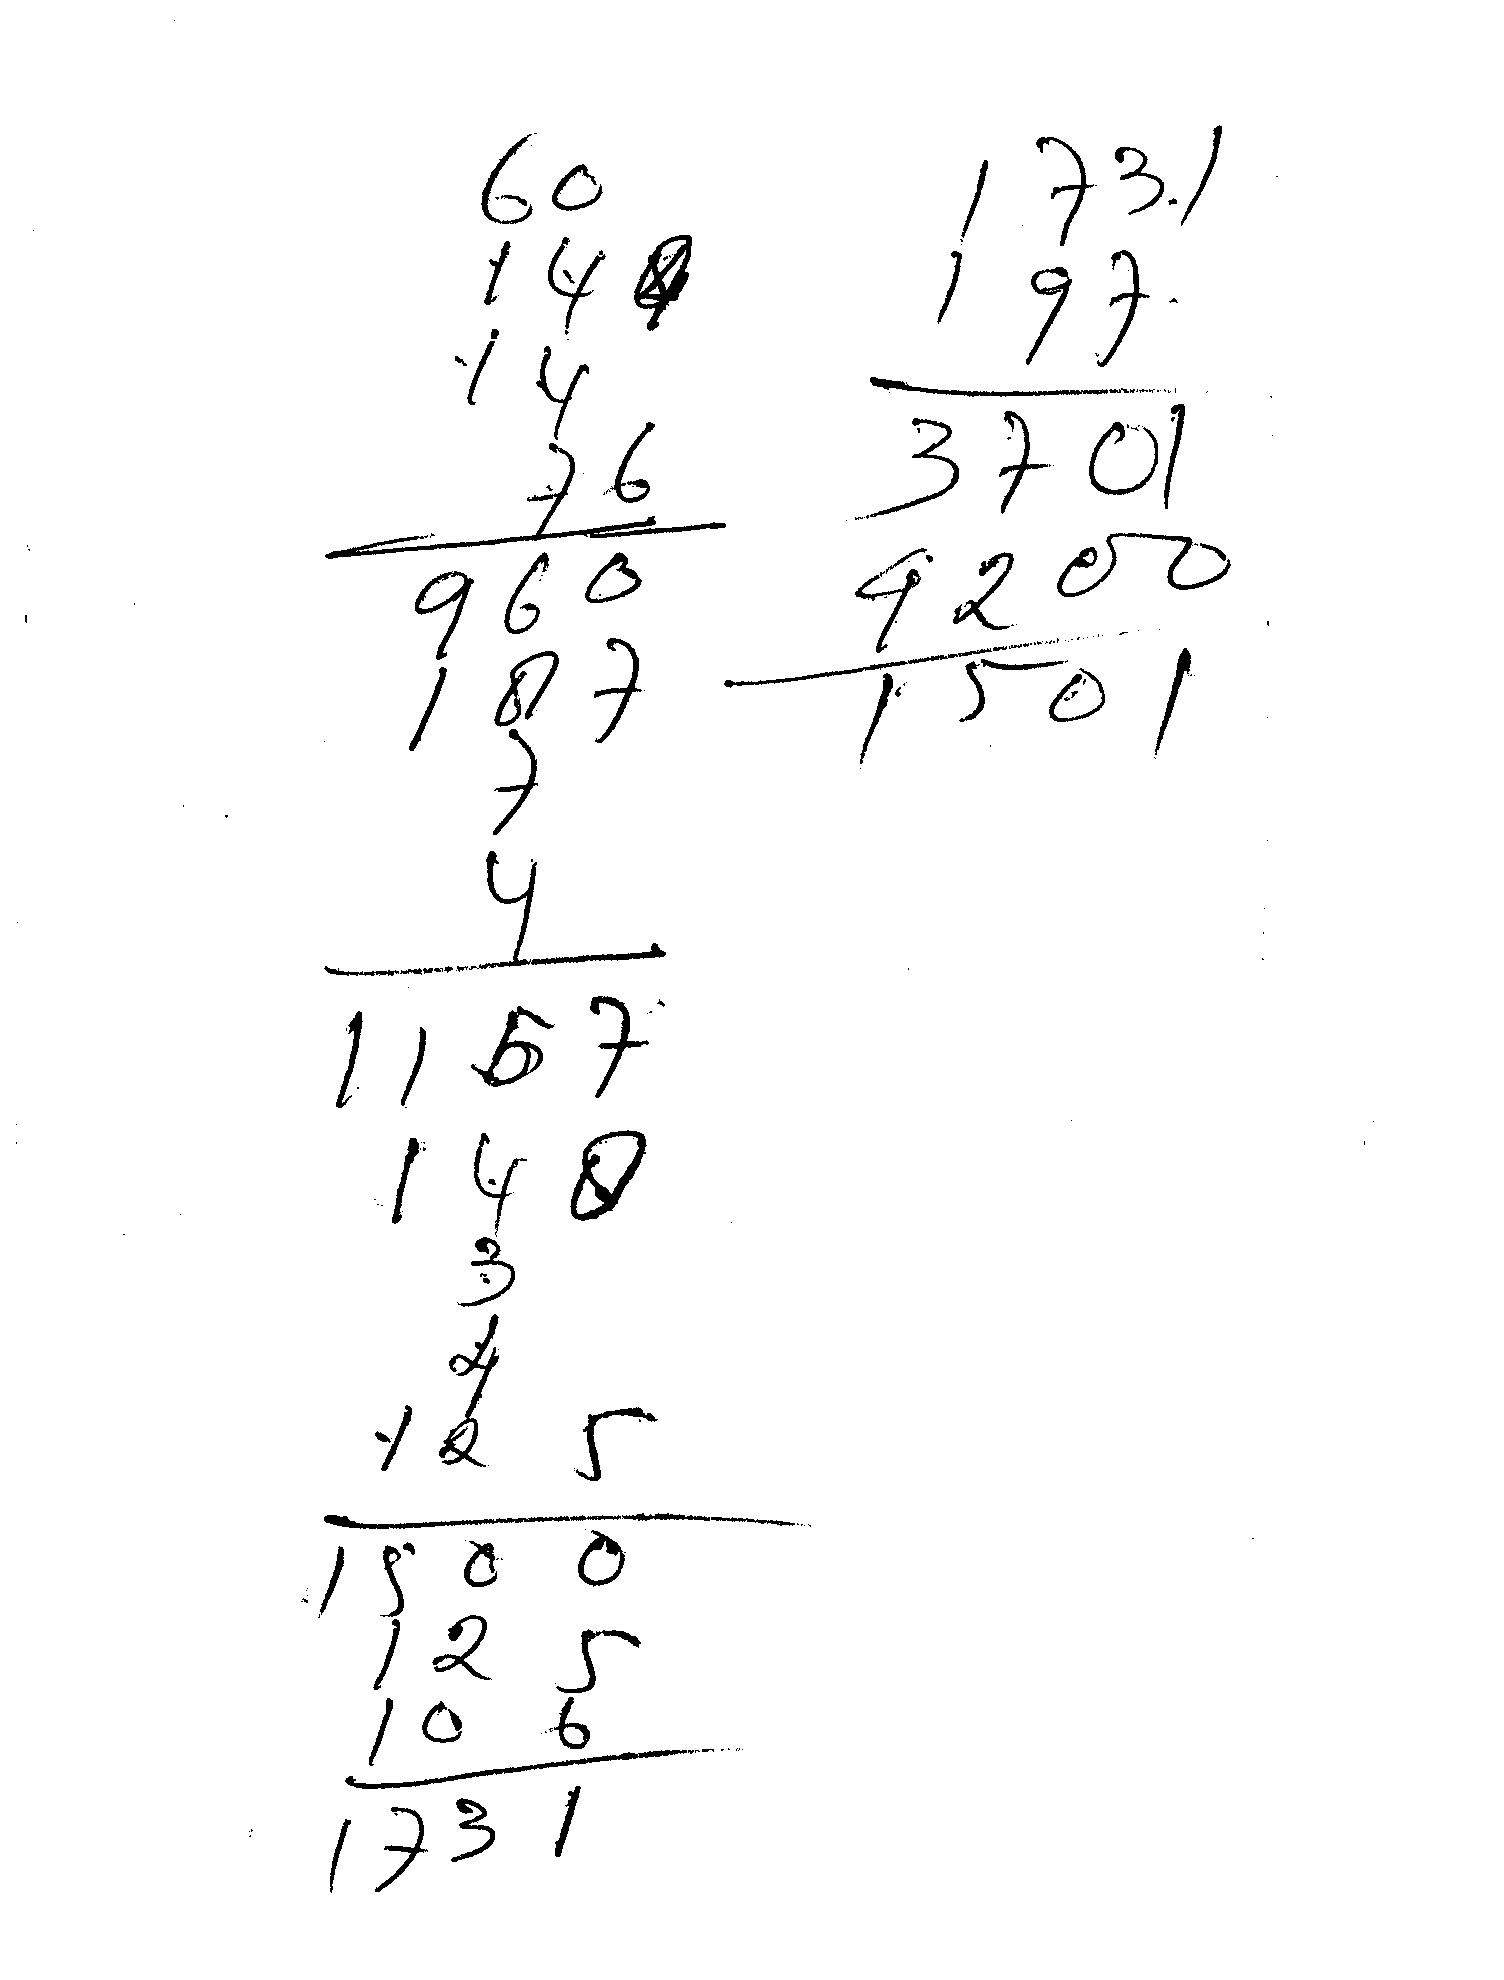 60
14
14
76
960
187
7
4
1157
140
3
4
125
1500
125
106
1731
173.1
197.
3701
9200
1501